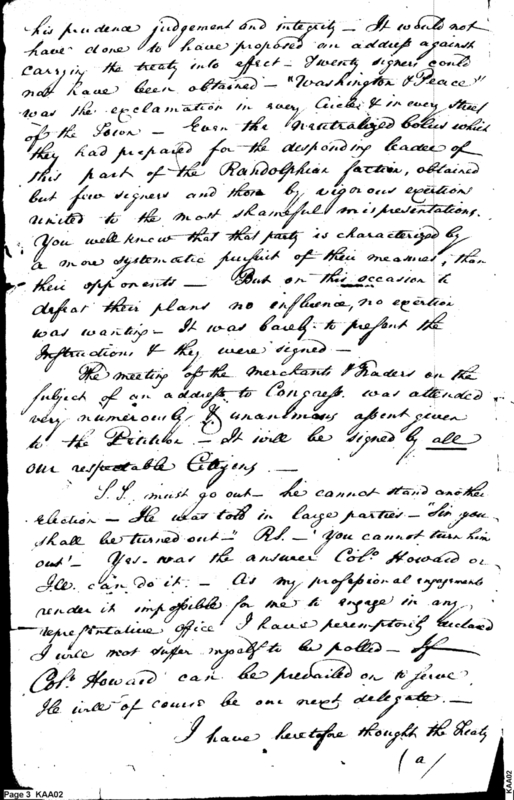 his prudence judgement and integrity – It would not
have done to have proposed an address against
carrying the treaty into effect – Twenty signers could
not have been obtained – "Washington & Peace"
was the exclamation in every Circle & in every street
of the Town – Even the neutralized bolus which
they had prepared for the desponding leader of
this part of the Randolphian faction, obtained
but few signers and those by vigorous exertion
united to the most shameful mispresentations.
You well know that that party is characterized by
a more systematic pursuit of their measures, than
their opponents – But on this occasion to
defeat their plans no influence, no exertion
was wanting – It was barely to present the
Instructions & they were signed –
The meeting of the merchants & Traders on the
subject of an address to Congress was attended
very numerously & unanimous assent given
to the Petition – It will be signed by all
our respectable Citizens –
S.S. must go out – he cannot stand another
Election – He was told in large parties – "Sir you
shall be turned out" R.S. – 'You cannot turn him
out' – Yes – was the answer Colo. Howard or
can do it – As my professional engagements
render it impossible for me to engage in any
representative office I have peremptorily declared
I will not suffer myself to be polled – If
Colo. Howard can be prevailed on to serve
He will of course be our next delegate. –
I have heretofore thought the Treaty
(a)
Page 3 KAA02
KAA02